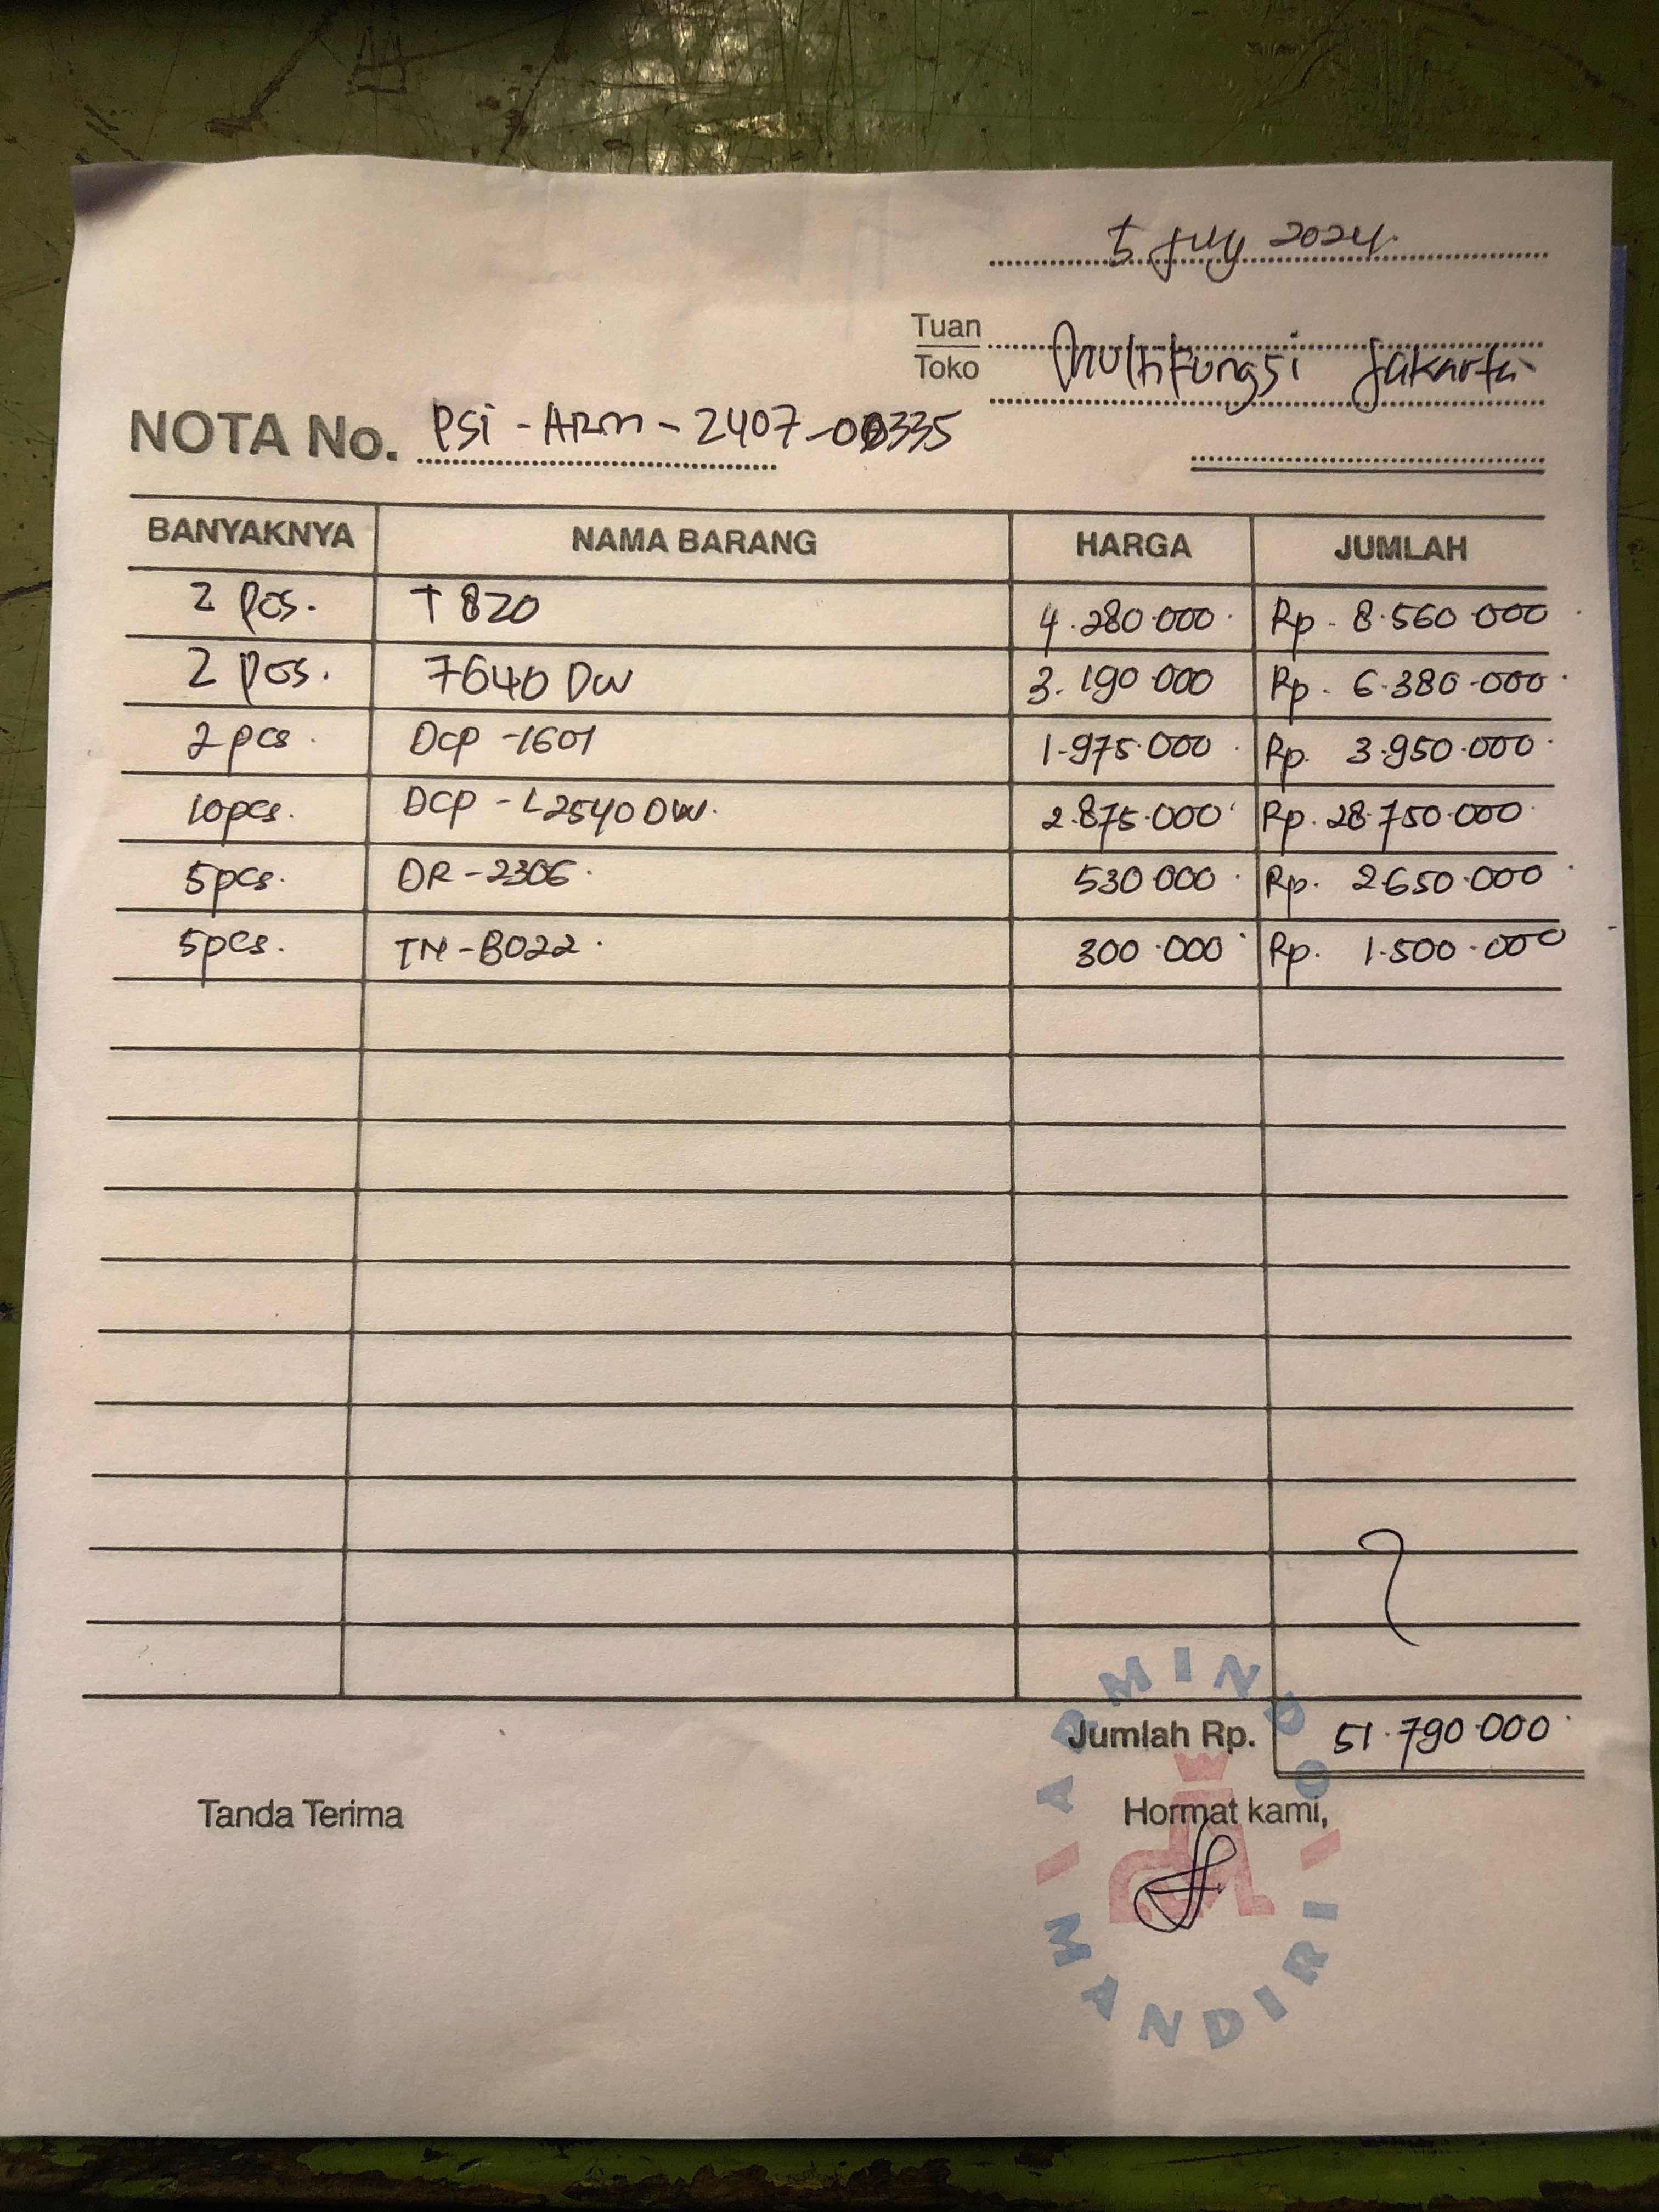 5 July 2024.
Tuan
Toko Multifungsi Jakarta
NOTA No. PSi - ARM - 2407 - 00335
BANYAKNYA NAMA BARANG HARGA JUMLAH
2 pcs. T 820 4.280.000 Rp. 8.560.000
2 pcs. 7640 DW 3.190.000 Rp. 6.380.000
2 pcs. DCP -1601 1.975.000 Rp. 3.950.000
10pcs. DCP - L2540 DW. 2.875.000 Rp. 28.750.000
5pcs. DR - 2306. 530.000 Rp. 2.650.000
5pcs. TN - B022. 300.000 Rp. 1.500.000
Jumlah Rp. 51.790.000
Tanda Terima Hormat kami,
ARMINDO
MANDIRI